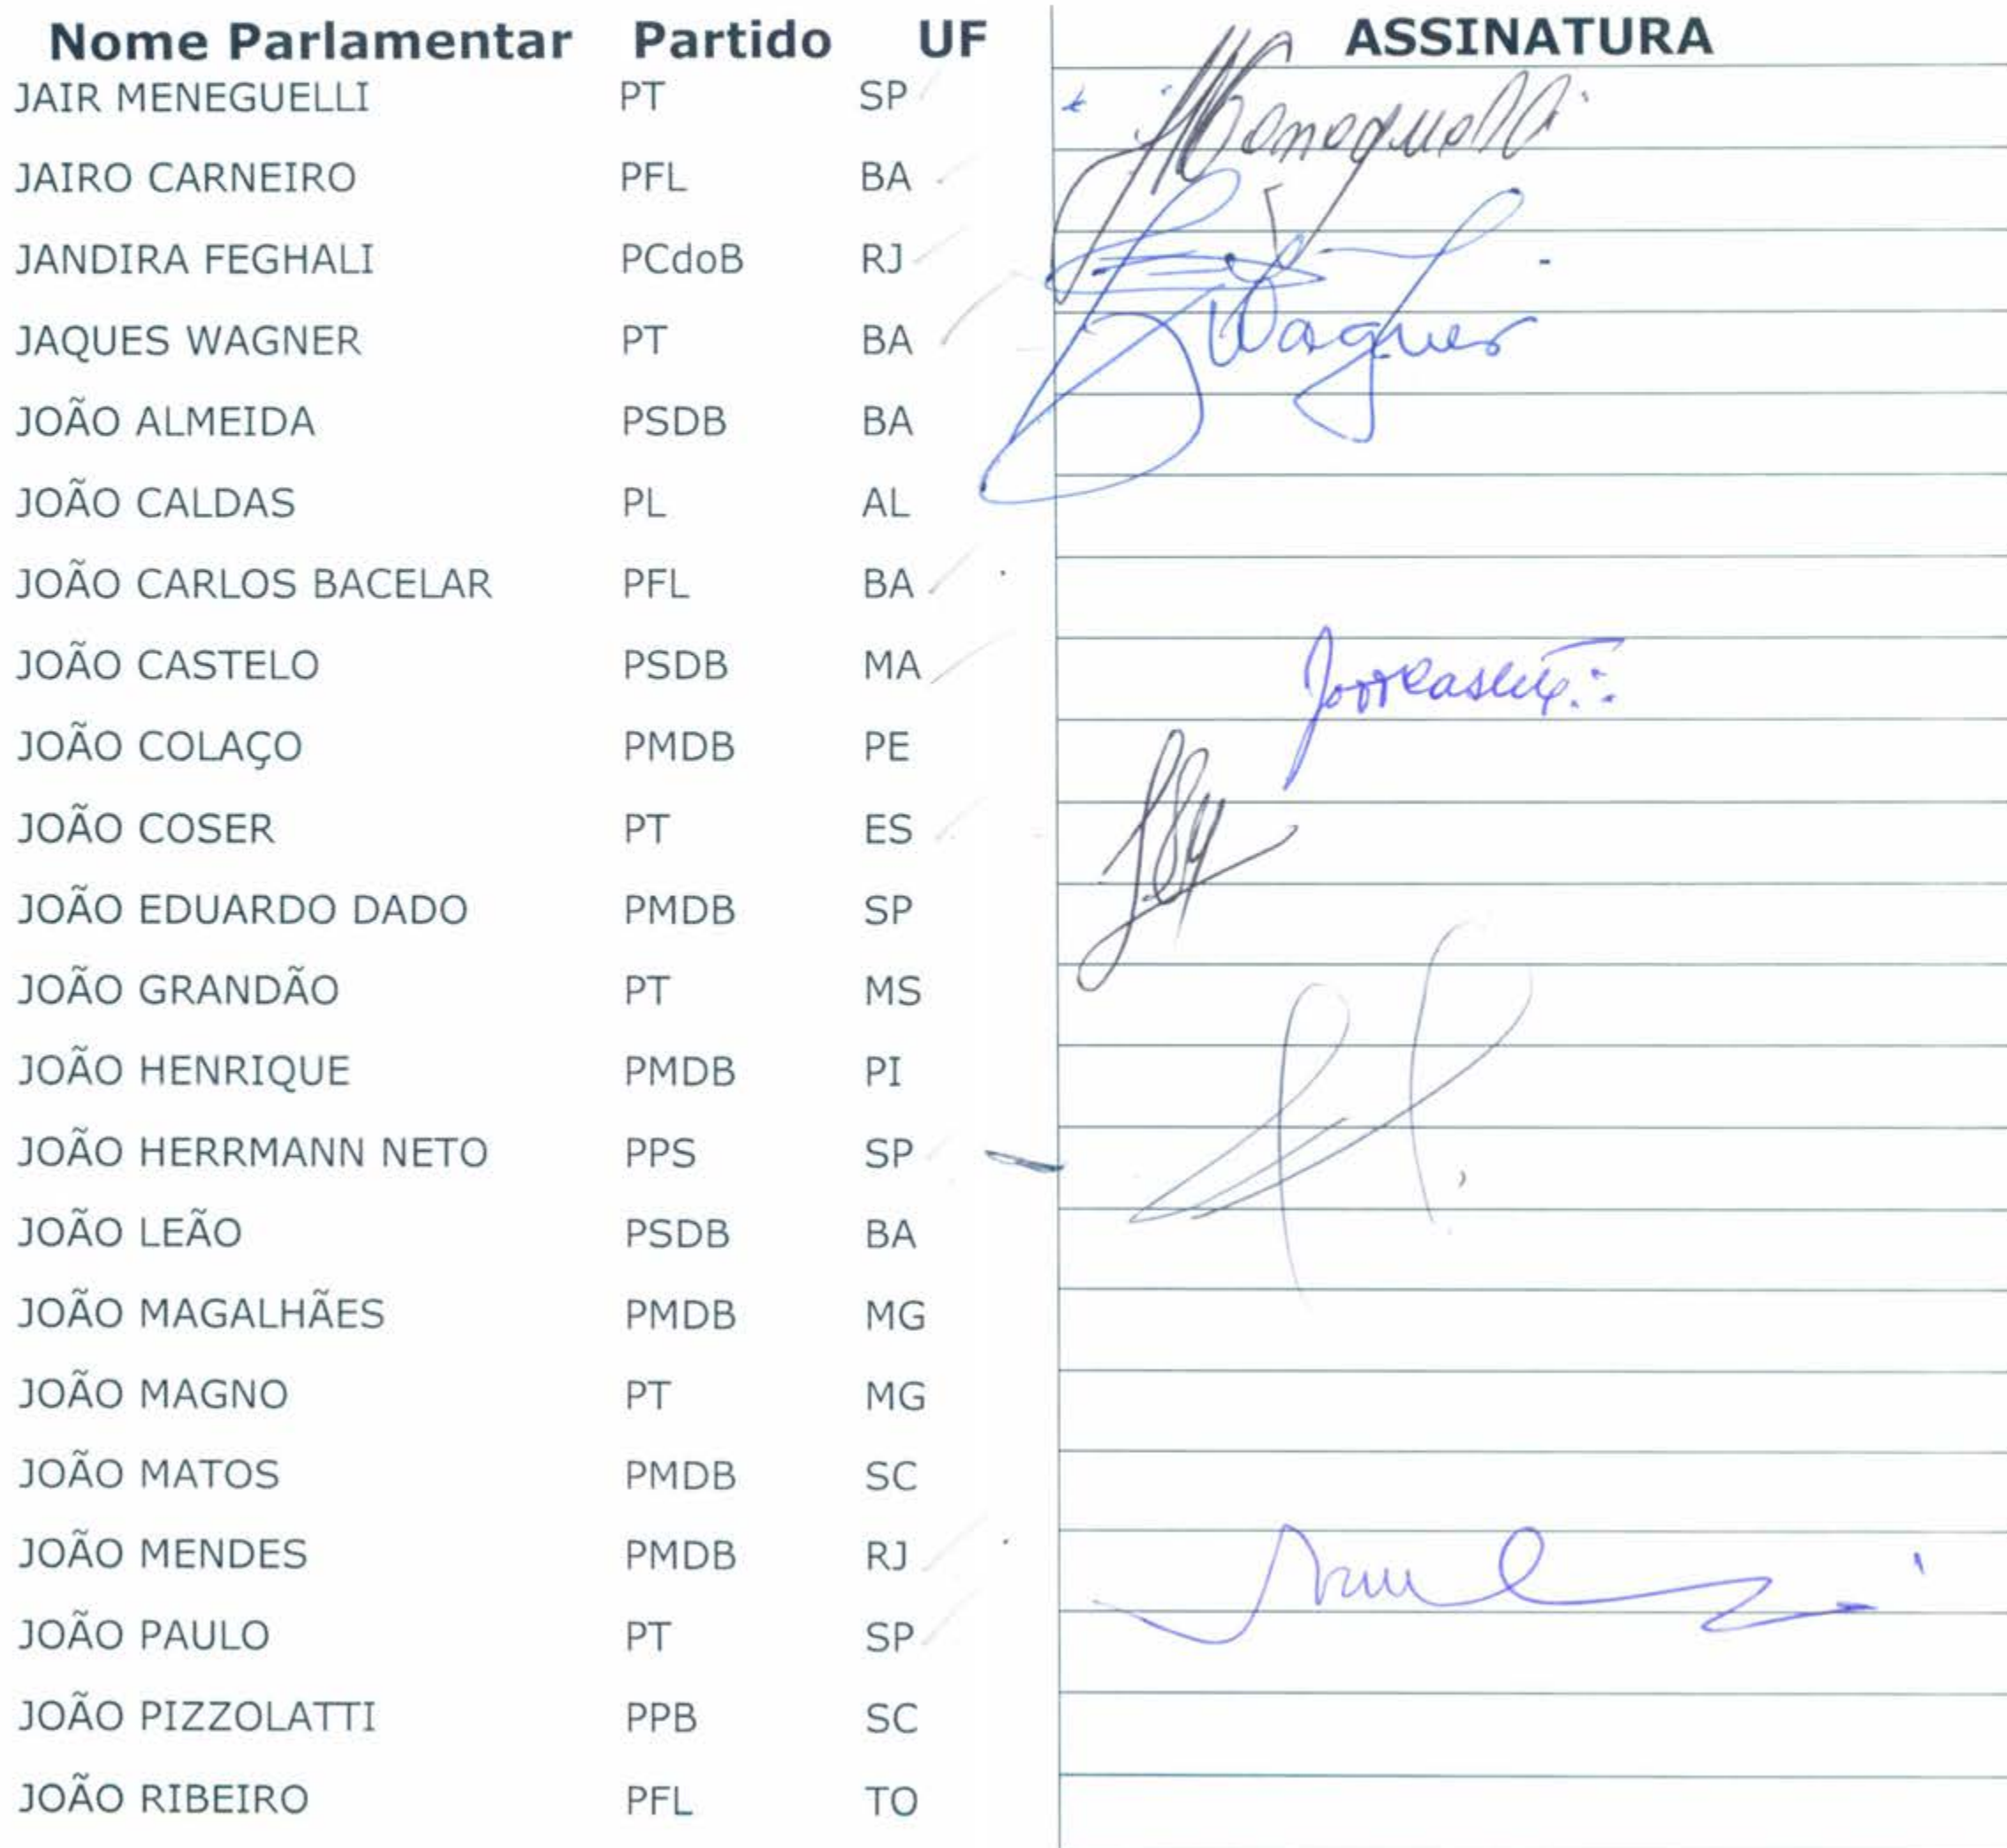 Nome Parlamentar Partido UF ASSINATURA
JAIR MENEGUELLI PT SP Meneguelli
JAIRO CARNEIRO PFL BA
JANDIRA FEGHALI PCdoB RJ
JAQUES WAGNER PT BA Wagner
JOÃO ALMEIDA PSDB BA
JOÃO CALDAS PL AL
JOÃO CARLOS BACELAR PFL BA
JOÃO CASTELO PSDB MA
JOÃO COLAÇO PMDB PE
JOÃO COSER PT ES
JOÃO EDUARDO DADO PMDB SP
JOÃO GRANDÃO PT MS
JOÃO HENRIQUE PMDB PI
JOÃO HERRMANN NETO PPS SP
JOÃO LEÃO PSDB BA
JOÃO MAGALHÃES PMDB MG
JOÃO MAGNO PT MG
JOÃO MATOS PMDB SC
JOÃO MENDES PMDB RJ
JOÃO PAULO PT SP
JOÃO PIZZOLATTI PPB SC
JOÃO RIBEIRO PFL TO